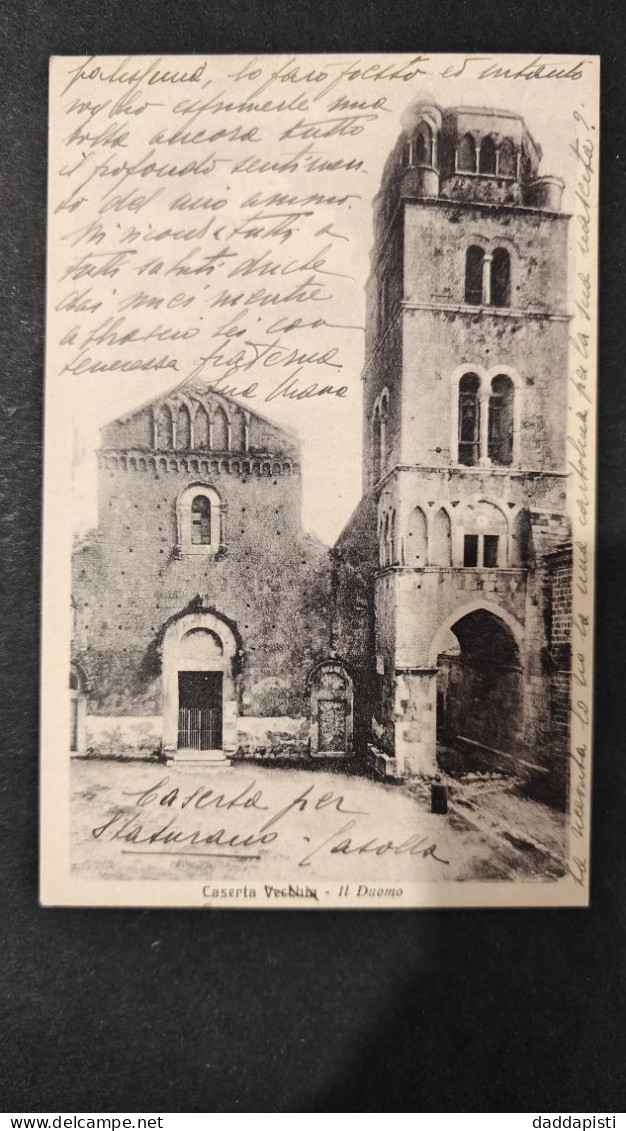 palesumà, lo farò presto ed intanto
voglio esprimerle una
volta ancora tutto
il profondo sentimen-
to del mio animo.
Mi ricordi a tutti a
tutti saluti anche
dai miei mentre
abbraccio Lei con
tenerezza fraterna
Sua
Caserta per
Staturano - Casolla
Caserta Vecchia - Il Duomo
La ricevuta lo una cartolina per la sua nascita?
daddapisti
Delcampe.net